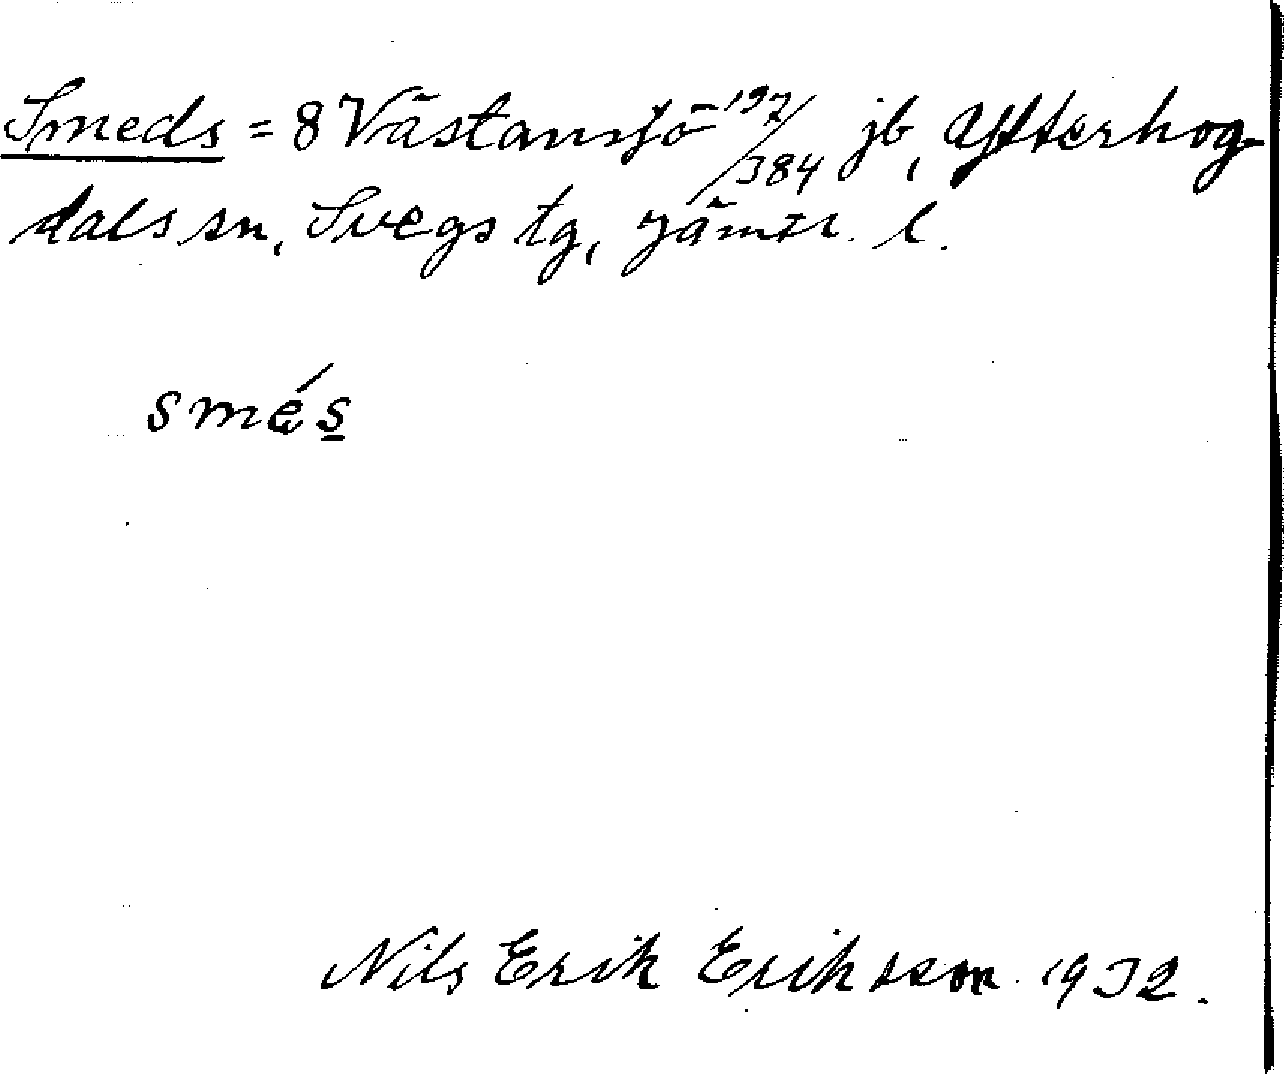 Smeds = 8 Västansjö 197/384 jb, Ytterhog-
dals sn, Svegs tg, Jämtl. l.
smés
Nils Erik Eriksson 1932.